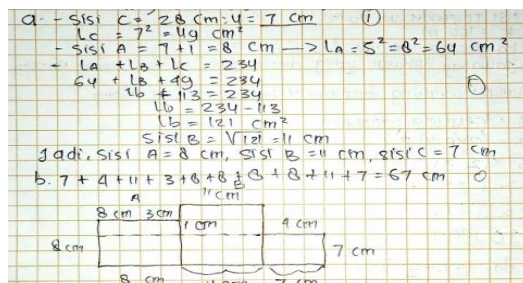 a. - Sisi C = 28 cm : 4 = 7 cm ①
Lc = 7² = 49 cm²
- Sisi A = 7 + 1 = 8 cm → LA = S² = 8² = 64 cm²
- LA + LB + LC = 234
64 + LB + 49 = 234
Lb + 113 = 234
Lb = 234 - 113
Lb = 121 cm²
Sisi B = √121 = 11 cm
Jadi, sisi A = 8 cm, sisi B = 11 cm, sisi C = 7 cm
b. 7 + 4 + 11 + 3 + 8 + 8 + 8 + 8 + 11 + 7 = 67 cm
A B
11 cm
8 cm 3 cm
1 cm 4 cm
8 cm 7 cm
8 cm 7 cm